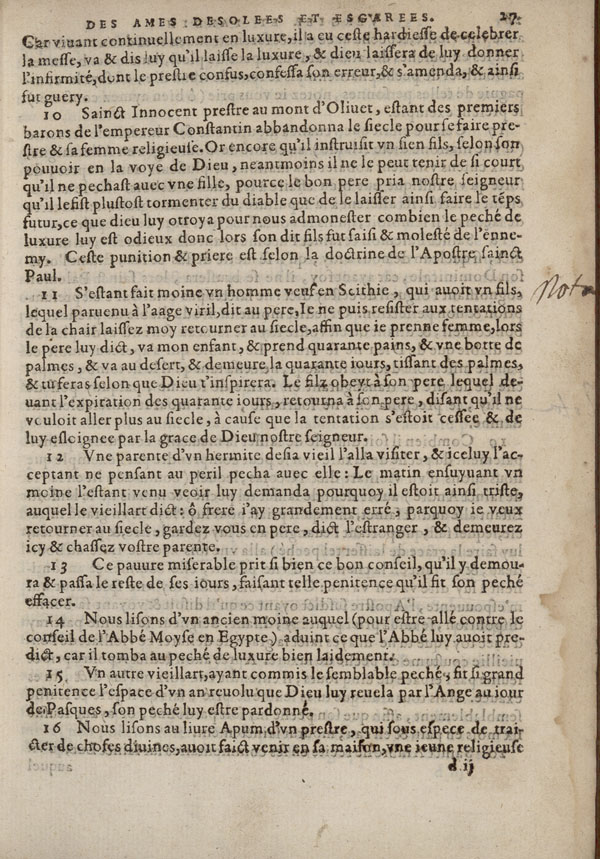 DES AMES DESOLEES ET ESGAREES. 27
Car viuant continuellement en luxure, il a eu ceste hardiesse de celebrer
la messe, va & dis luy qu'il laisse la luxure, & dieu laissera de luy donner
l'infirmité, dont le prestre confus, confessa son erreur, & s'amenda, & ainsi
fut guery.
10 Sainct Innocent prestre au mont d'Oliuet, estant des premiers
barons de l'empereur Constantin abbandonna le siecle pour se faire pre-
stre & sa femme religieuse. Or encore qu'il instruisit vn sien fils, selon son
pouuoir en la voye de Dieu, neantmoins il ne le peut tenir de si court
qu'il ne pechast auec vne fille, pource le bon pere pria nostre seigneur
qu'il le fist plustost tormenter du diable que de le laisser ainsi faire le tẽps
futur, ce que dieu luy otroya pour nous admonester combien le peché de
luxure luy est odieux donc lors son dit fils fut saisi & molesté de l'enne-
my. Ceste punition & priere est selon la doctrine de l'Apostre sainct
Paul.
11 S'estant fait moine vn homme veuf en Scithie, qui auoit vn fils,
lequel paruenu à l'aage viril, dit au pere, Ie ne puis resister aux tentations
de la chair laissez moy retourner au siecle, affin que ie prenne femme, lors
le pere luy dict, va mon enfant, & prend quarante pains, & vne botte de
palmes, & va au desert, & demeure la quarante iours, tissant des palmes,
& tu feras selon que Dieu t'inspirera. Le filz obeyt à son pere lequel de-
uant l'expiration des quarante iours, retourna à son pere, disant qu'il ne
vouloit aller plus au siecle, à cause que la tentation s'estoit cessée & de
luy esloignee par la grace de Dieu nostre seigneur.
Nota
12 Vne parente d'vn hermite desia vieil l'alla visiter, & iceluy l'ac-
ceptant ne pensant au peril pecha auec elle: Le matin ensuyuant vn
moine l'estant venu veoir luy demanda pourquoy il estoit ainsi triste,
auquel le vieillart dict: ô frere i'ay grandement erré, parquoy ie veux
retourner au siecle, gardez vous en pere, dict l'estranger, & demeurez
icy & chassez vostre parente.
13 Ce pauure miserable prit si bien ce bon conseil, qu'il y demou-
ra & passa le reste de ses iours, faisant telle penitence qu'il fit son peché
effacer.
14 Nous lisons d'vn ancien moine auquel (pour estre allé contre le
conseil de l'Abbé Moyse en Egypte) aduint ce que l'Abbé luy auoit pre-
dict, car il tomba au peché de luxure bien laidement.
15 Vn autre vieillart, ayant commis le semblable peché, fit si grand
penitence l'espace d'vn an reuolu que Dieu luy reuela par l'Ange au iour
de Pasques, son peché luy estre pardonné.
16 Nous lisons au liure Apum, d'vn prestre, qui sous espece de trai-
cter de choses diuines, auoit faict venir en sa maison, vne ieune religieuse
d ij